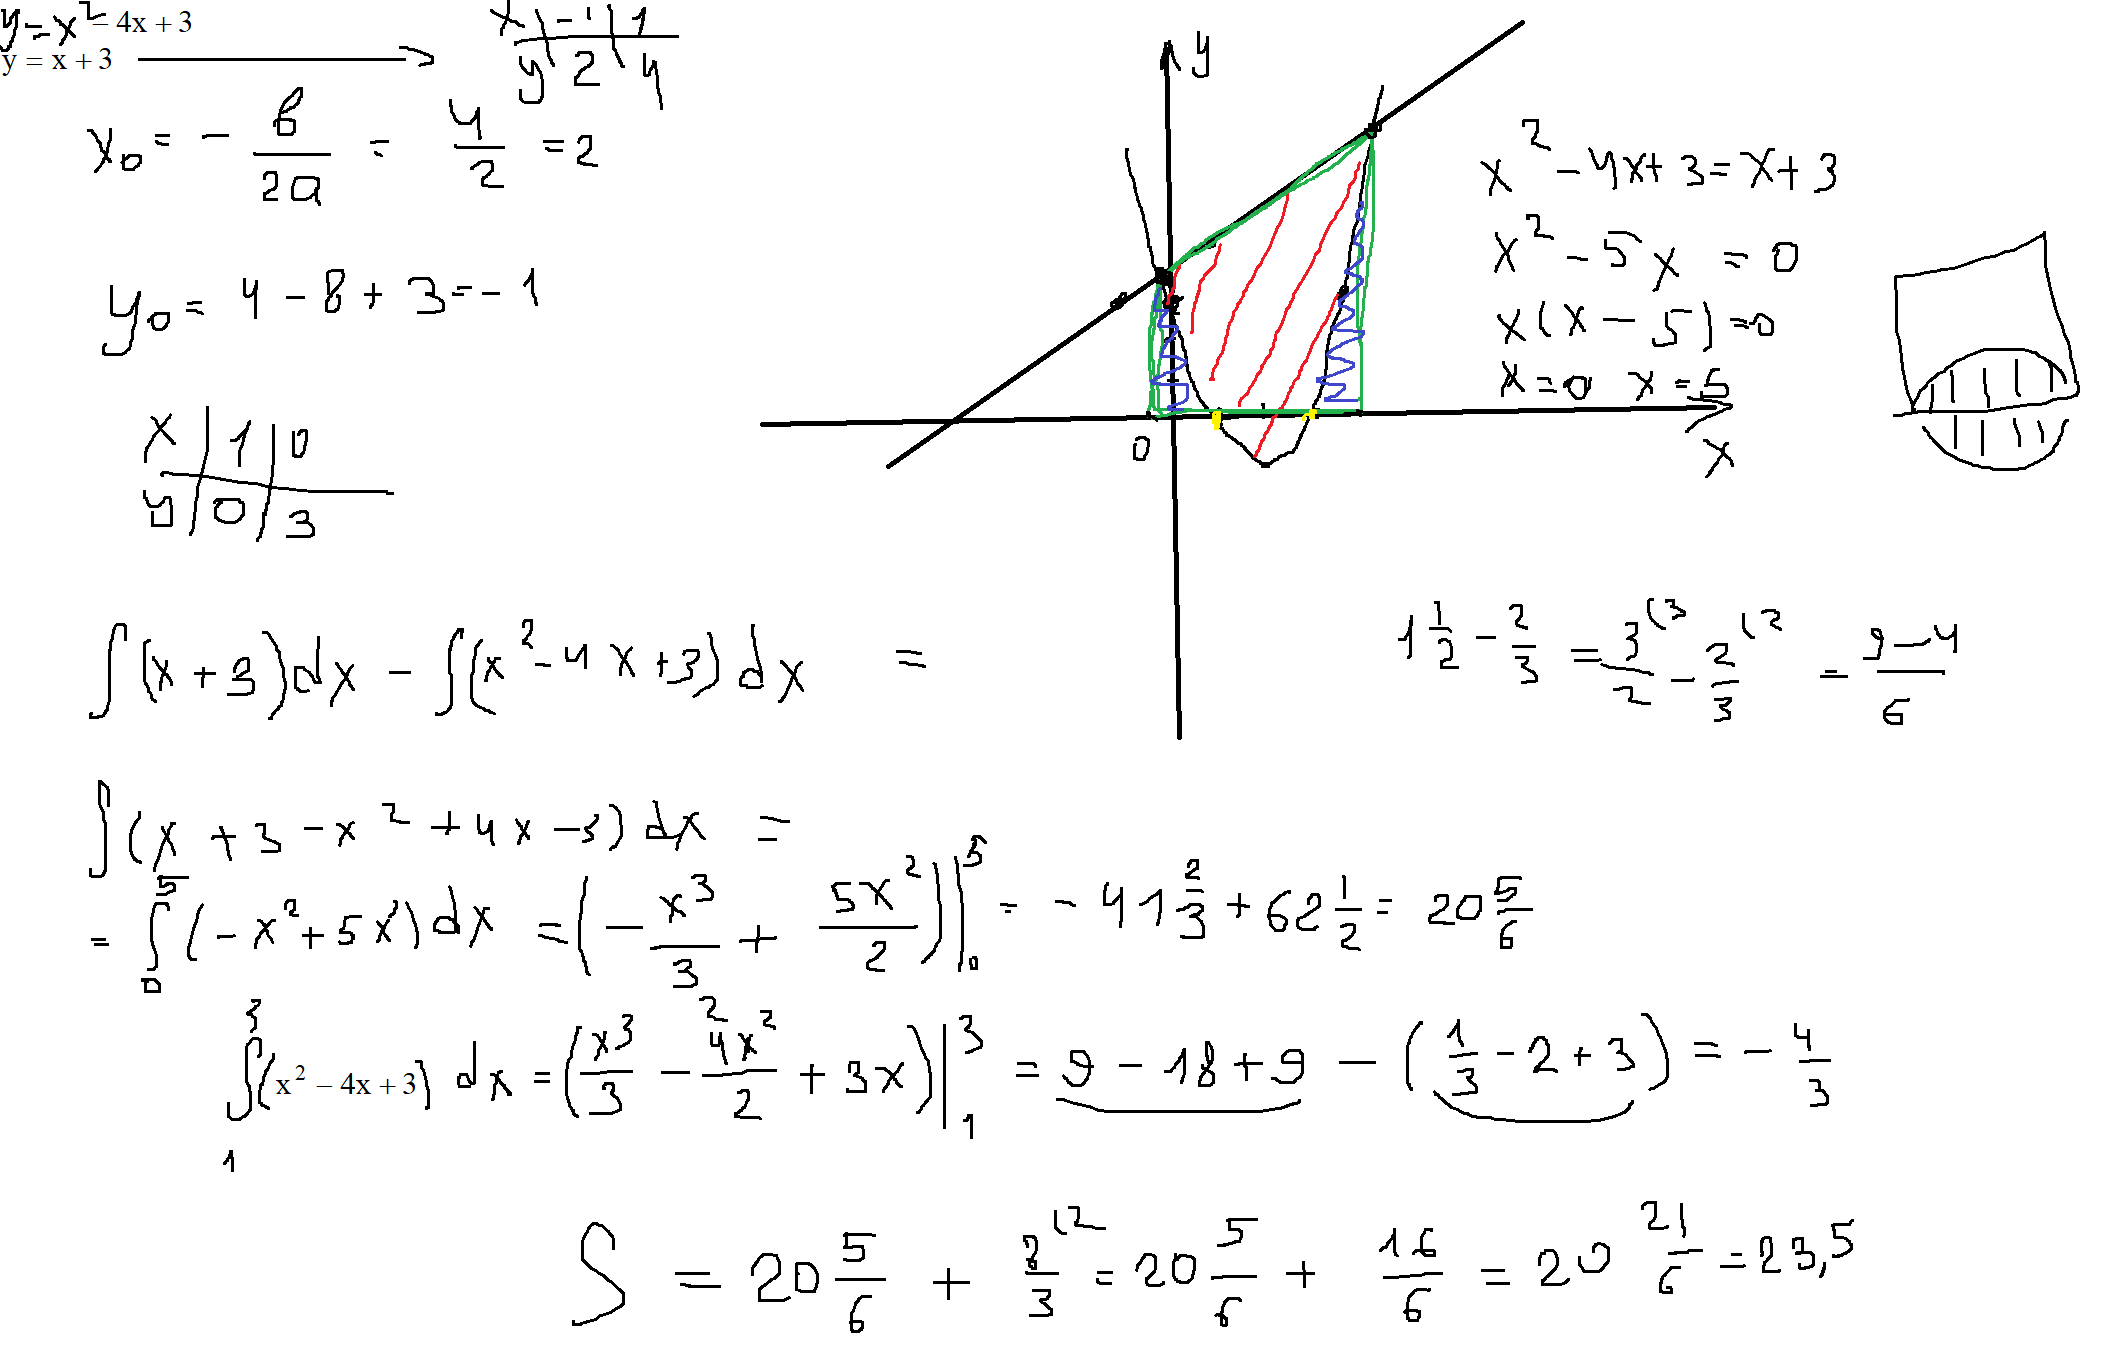 y = x² − 4x + 3
y = x + 3
x | -1 | 1
y | 2 | 4
x₀ = - в/2a = 4/2 = 2
y₀ = 4 - 8 + 3 = -1
x | 1 | 0
y | 0 | 3
y
0
x
x² - 4x + 3 = x + 3
x² - 5x = 0
x(x - 5) = 0
x = 0 x = 5
∫(x + 3)dx - ∫(x² - 4x + 3)dx =
1 1/2 - 2/3 = 3/2 (3 - 2/3 (2 = (9 - 4)/6
∫(x + 3 - x² + 4x - 3)dx =
= ∫₀⁵(-x² + 5x)dx = (-x³/3 + 5x²/2)|₀⁵ = -41 2/3 + 62 1/2 = 20 5/6
∫₁³(x² − 4x + 3)dx = (x³/3 - 4x²/2 + 3x)|₁³ = 9 - 18 + 9 - (1/3 - 2 + 3) = -4/3
S = 20 5/6 + 8/3 (2 = 20 5/6 + 16/6 = 20 21/6 = 23,5